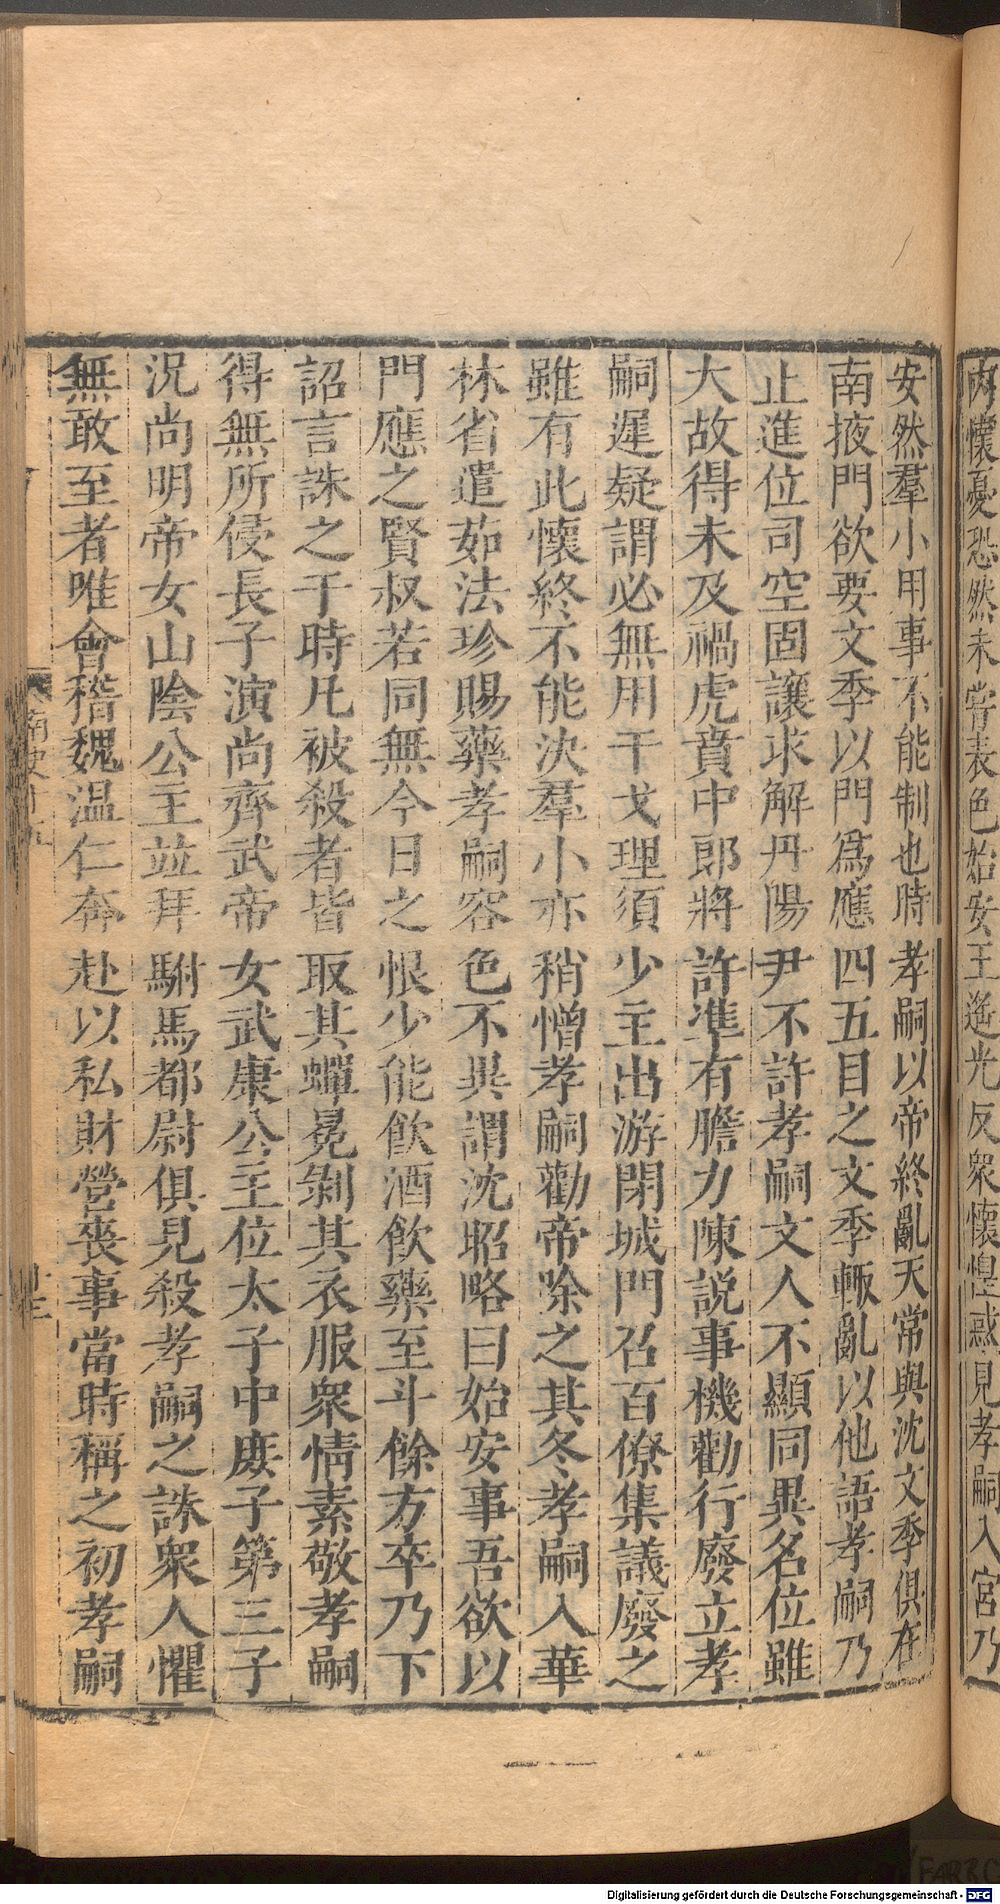 內懷憂恐然未嘗表色始安王遙光反衆懷惶惑見孝嗣入宮乃
安然羣小用事不能制也時孝嗣以帝終亂天常與沈文季俱在
南掖門欲要文季以門爲應四五目之文季輒亂以他語孝嗣乃
止進位司空固讓求解丹陽尹不許孝嗣文人不顯同異名位雖
大故得未及禍虎賁中郎將許準有膽力陳說事機勸行廢立孝
嗣遲疑謂必無用干戈理須少主出游閉城門召百僚集議廢之
雖有此懷終不能決羣小亦稍憎孝嗣勸帝除之其冬孝嗣入華
林省遣茹法珍賜藥孝嗣容色不異謂沈昭略曰始安事吾欲以
門應之賢叔若同無今日之恨少能飲酒飲藥至斗餘方卒乃下
詔言誅之于時凡被殺者皆取其蟬冕剝其衣服衆情素敬孝嗣
得無所侵長子演尚齊武帝女武康公主位太子中庶子第三子
況尚明帝女山陰公主並拜駙馬都尉俱見殺孝嗣之誅衆人懼
無敢至者唯會稽魏温仁奔赴以私財營喪事當時稱之初孝嗣
Digitalisierung gefördert durch die Deutsche Forschungsgemeinschaft - DFG